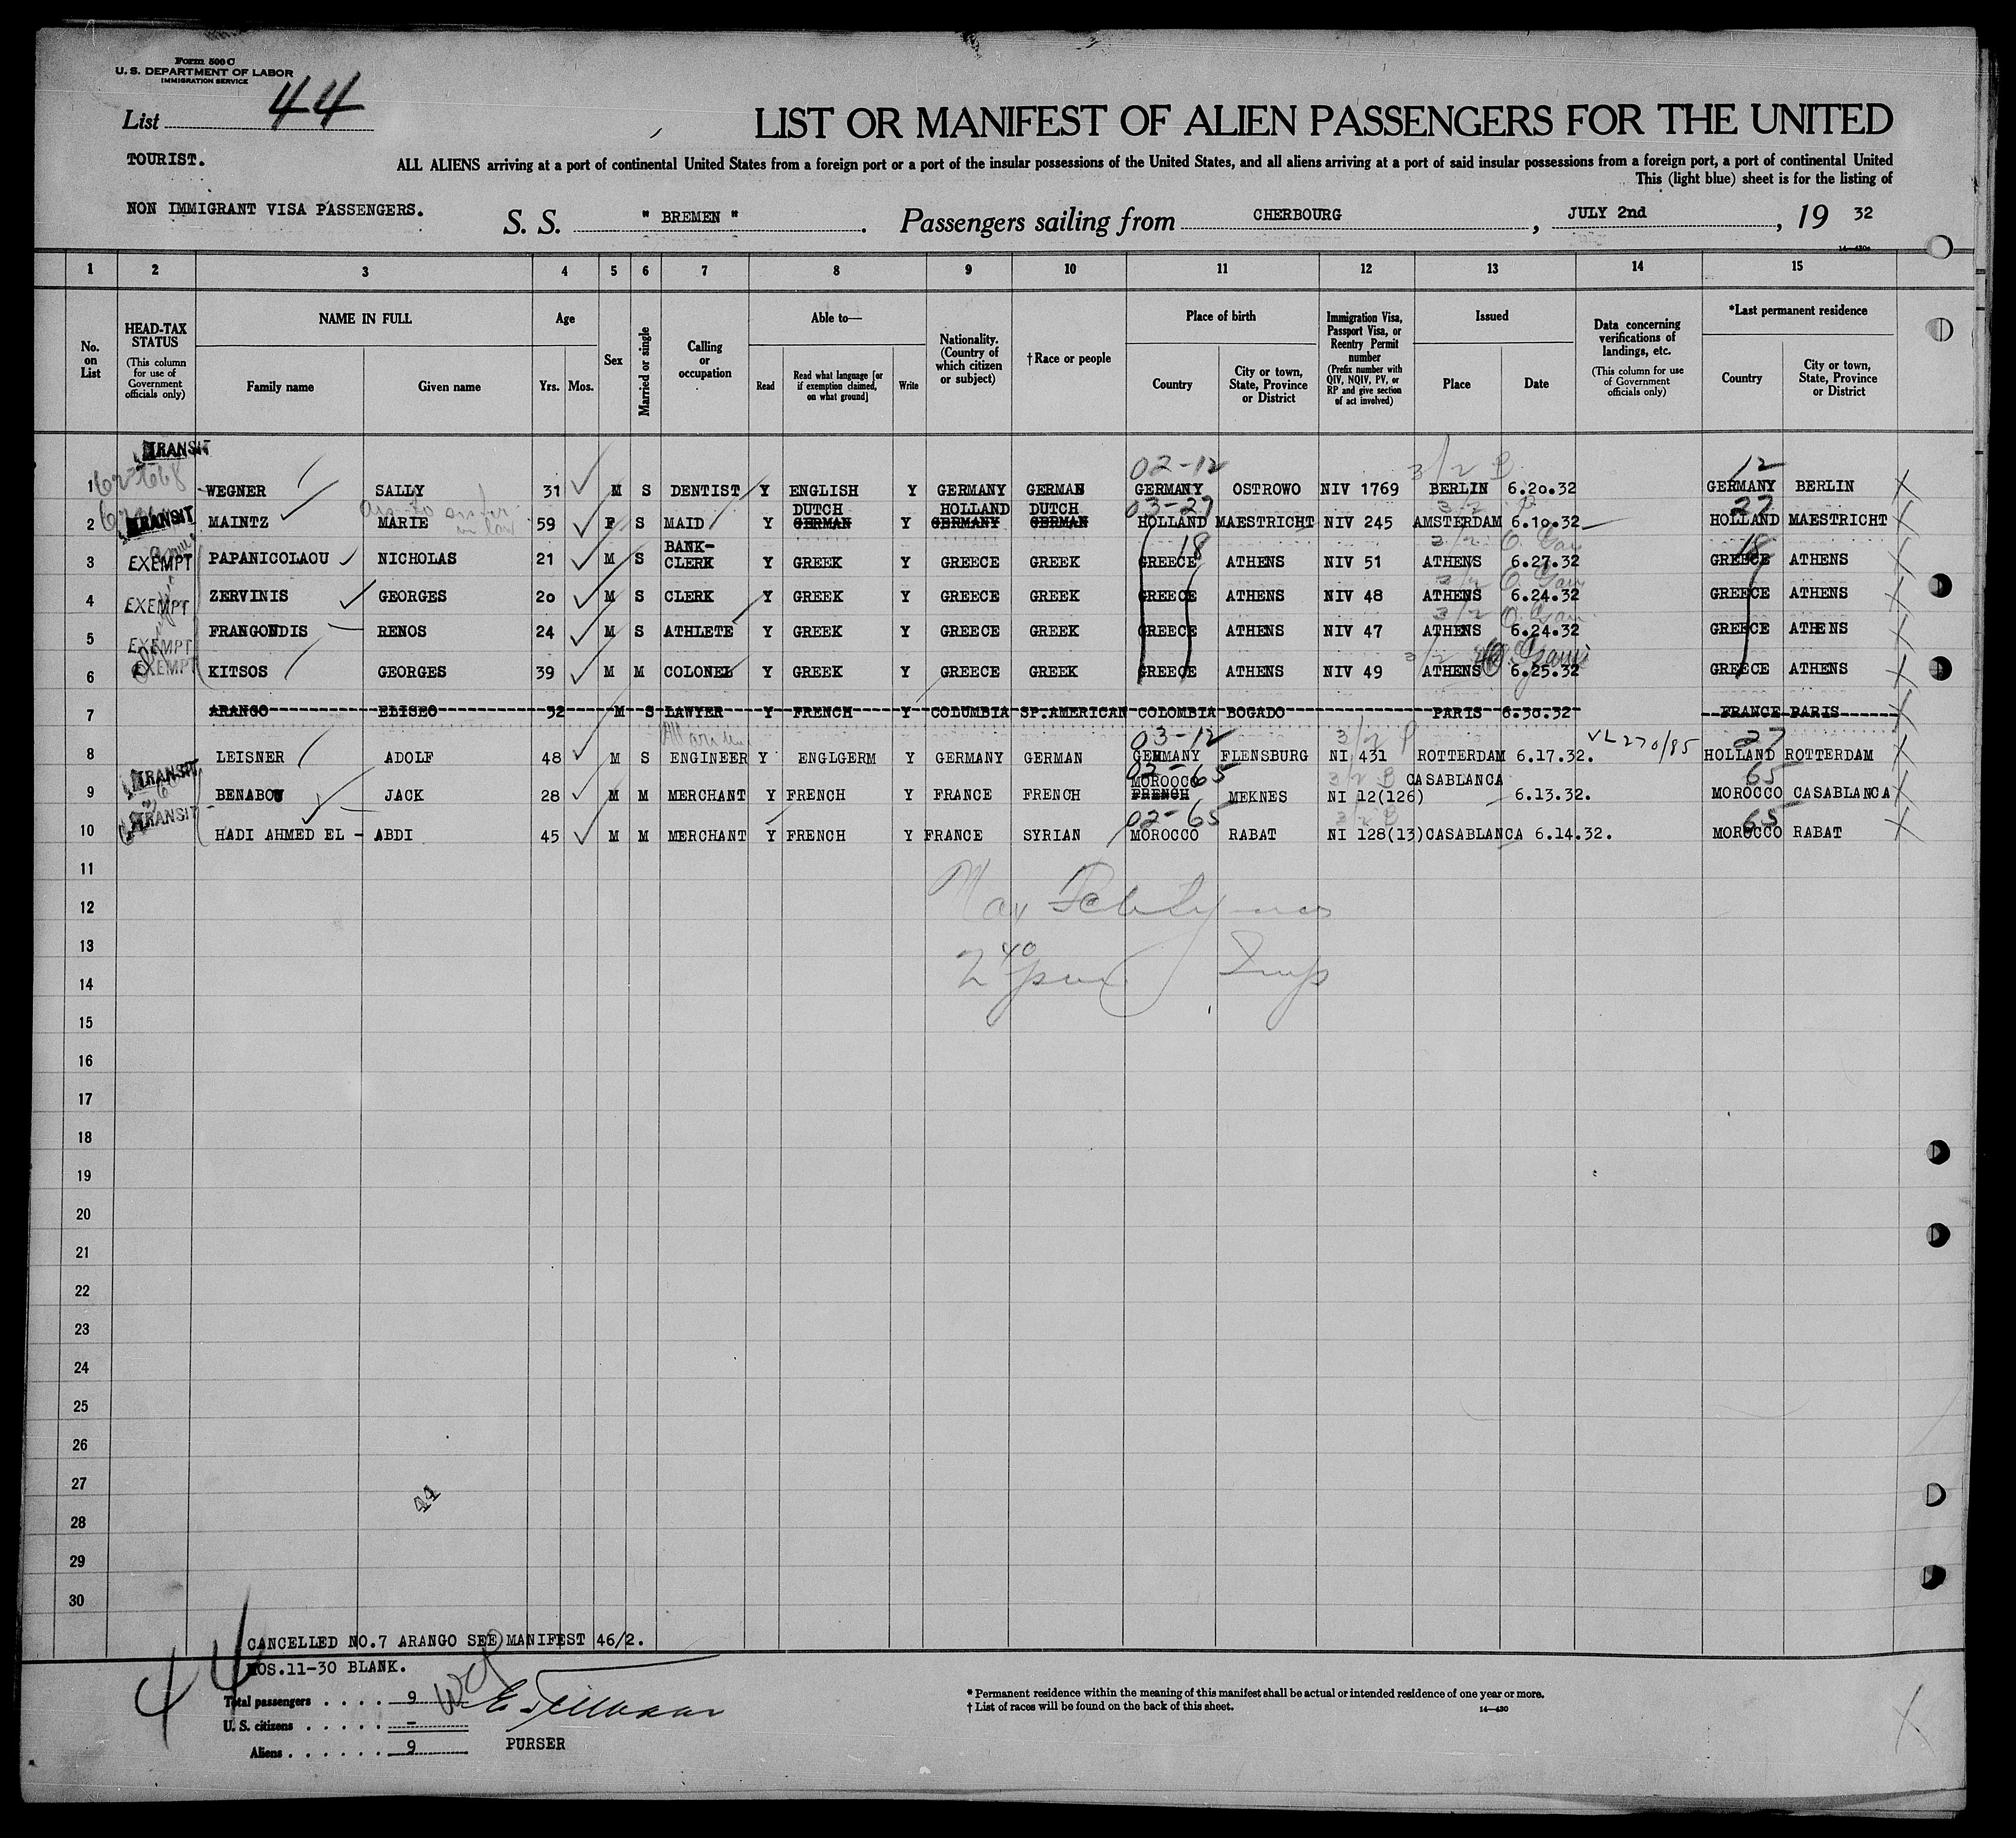 Form 500 C
U. S. DEPARTMENT OF LABOR
IMMIGRATION SERVICE
List 44
LIST OR MANIFEST OF ALIEN PASSENGERS FOR THE UNITED
TOURIST.
ALL ALIENS arriving at a port of continental United States from a foreign port or a port of the insular possessions of the United States, and all aliens arriving at a port of said insular possessions from a foreign port, a port of continental United
This (light blue) sheet is for the listing of
NON IMMIGRANT VISA PASSENGERS.
S. S. " BREMEN ". Passengers sailing from CHERBOURG, JULY 2nd, 19 32
14—430a
1 2 3 4 5 6 7 8 9 10 11 12 13 14 15
No. on List
HEAD-TAX STATUS (This column for use of Government officials only)
NAME IN FULL Family name Given name
Age Yrs. Mos.
Sex
Married or single
Calling or occupation
Able to— Read Read what language [or if exemption claimed, on what ground] Write
Nationality. (Country of which citizen or subject)
†Race or people
Place of birth Country City or town, State, Province or District
Immigration Visa, Passport Visa, or Reentry Permit number (Prefix number with QIV, NQIV, PV, or RP and give section of act involved)
Issued Place Date
Data concerning verifications of landings, etc. (This column for use of Government officials only)
*Last permanent residence Country City or town, State, Province or District
TRANSIT
02-12 3/2 B 12
1 WEGNER SALLY 31 M S DENTIST Y ENGLISH Y GERMANY GERMAN GERMANY OSTROWO NIV 1769 BERLIN 6.20.32 GERMANY BERLIN
DUTCH HOLLAND DUTCH 03-27 3/2 27
2 TRANSIT MAINTZ MARIE 59 F S MAID Y GERMAN Y GERMANY GERMAN HOLLAND MAESTRICHT NIV 245 AMSTERDAM 6.10.32 HOLLAND MAESTRICHT
BANK- 18 3/2 18
3 EXEMPT PAPANICOLAOU NICHOLAS 21 M S CLERK Y GREEK Y GREECE GREEK GREECE ATHENS NIV 51 ATHENS 6.27.32 GREECE ATHENS
3/2
4 EXEMPT ZERVINIS GEORGES 20 M S CLERK Y GREEK Y GREECE GREEK GREECE ATHENS NIV 48 ATHENS 6.24.32 GREECE ATHENS
3/2
5 EXEMPT FRANGONDIS RENOS 24 M S ATHLETE Y GREEK Y GREECE GREEK GREECE ATHENS NIV 47 ATHENS 6.24.32 GREECE ATHENS
3/2
6 EXEMPT KITSOS GEORGES 39 M M COLONEL Y GREEK Y GREECE GREEK GREECE ATHENS NIV 49 ATHENS 6.25.32 GREECE ATHENS
7 ARANGO ELISEO 32 M S LAWYER Y FRENCH Y COLUMBIA SP.AMERICAN COLOMBIA BOGADO PARIS 6.30.32 FRANCE PARIS
03-12 3/2 P VL270/85 27
8 LEISNER ADOLF 48 M S ENGINEER Y ENGLGERM Y GERMANY GERMAN GERMANY FLENSBURG NI 431 ROTTERDAM 6.17.32. HOLLAND ROTTERDAM
TRANSIT 02-65 MOROOCO 3/2 B CASABLANCA 65
9 BENABOU JACK 28 M M MERCHANT Y FRENCH Y FRANCE FRENCH FRENCH MEKNES NI 12(126) 6.13.32. MOROCCO CASABLANCA
TRANSIT 02-65 3/2 B 65
10 HADI AHMED EL - ABDI 45 M M MERCHANT Y FRENCH Y FRANCE SYRIAN MOROCCO RABAT NI 128(13) CASABLANCA 6.14.32. MOROCCO RABAT
11
12
13
2 40 pm Insp
14
15
16
17
18
19
20
21
22
23
24
25
26
27
44
28
29
30
CANCELLED NO.7 ARANGO SEE MANIFEST 46/2.
44 NOS.11-30 BLANK.
Total passengers .... 9
U. S. citizens ..... -
Aliens ...... 9
PURSER
* Permanent residence within the meaning of this manifest shall be actual or intended residence of one year or more.
† List of races will be found on the back of this sheet.
14—430